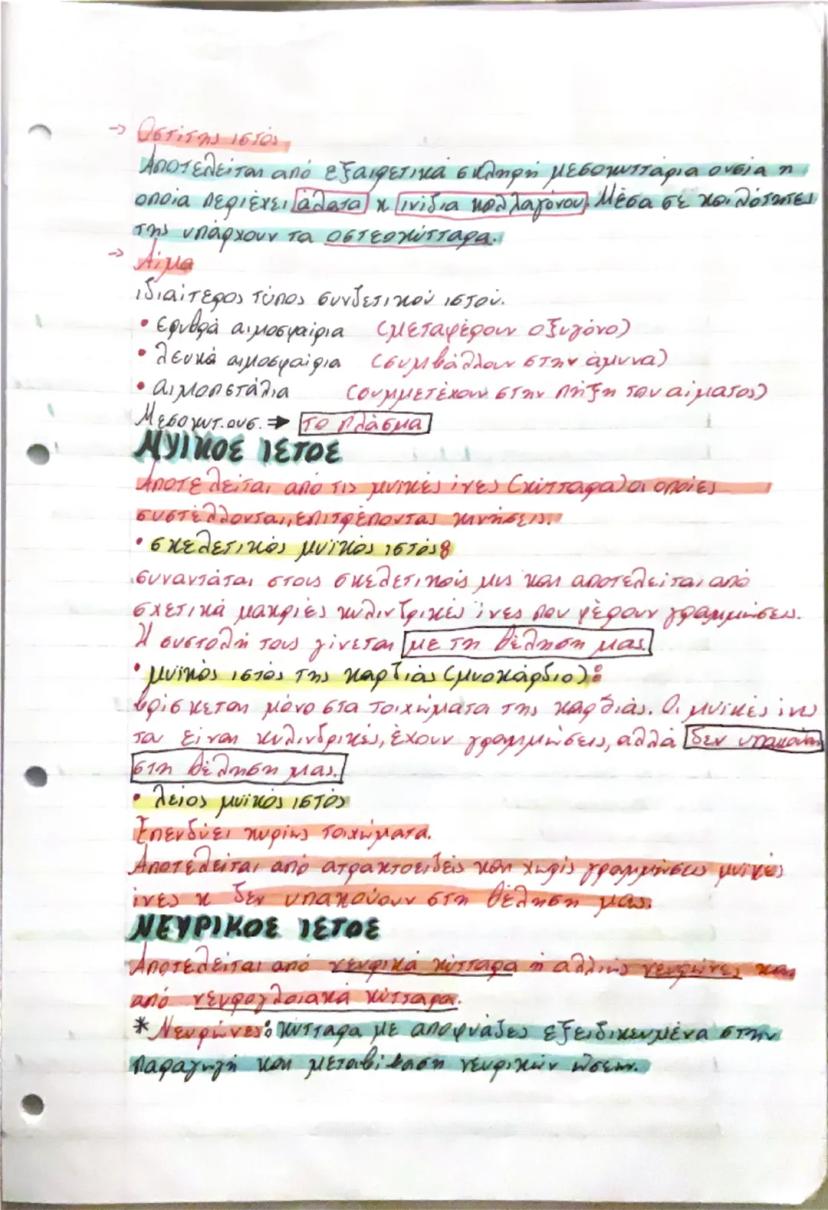 → Οστίτης ιστός
Αποτελείται από εξαιρετικά σκληρή μεσοκυττάρια ουσία η
οποία περιέχει άλατα κ ινίδια κολλαγόνου. Μέσα σε κοιλότητες
της υπάρχουν τα οστεοκύτταρα.
→ Αίμα
ιδιαίτερος τύπος συνδετικού ιστού.
• ερυθρά αιμοσφαίρια (μεταφέρουν οξυγόνο)
• λευκά αιμοσφαίρια (συμβάλλουν στην άμυνα)
• αιμοπετάλια (συμμετέχουν στην πήξη του αίματος)
Μεσοκυτ.ουσ. → το πλάσμα
ΜΥΙΚΟΣ ΙΣΤΟΣ
Αποτελείται από τις μυικές ίνες (κύτταρα) οι οποίες
συστέλλονται, επιτρέποντας κινήσεις.
• σκελετικός μυϊκός ιστός:
συναντάται στους σκελετικούς μυς και αποτελείται από
σχετικά μακριές κυλινδρικές ίνες που φέρουν γραμμώσεις.
Η συστολή τους γίνεται με τη θέληση μας.
• μυϊκός ιστός της καρδιάς (μυοκάρδιο):
βρίσκεται μόνο στα τοιχώματα της καρδιάς. Οι μυικές ίνες
του είναι κυλινδρικές, έχουν γραμμώσεις, αλλά δεν υπακούν
στη θέληση μας.
• λείος μυϊκός ιστός
Επενδύει κυρίως τοιχώματα.
Αποτελείται από ατρακτοειδείς και χωρίς γραμμώσεις μυικές
ίνες κ δεν υπακούουν στη θέληση μας.
ΝΕΥΡΙΚΟΣ ΙΣΤΟΣ
Αποτελείται από νευρικά κύτταρα ή αλλιώς νευρώνες και
από νευρογλοιακά κύτταρα.
* Νευρώνες: κύτταρα με αποφυάδες εξειδικευμένα στην
παραγωγή και μεταβίβαση νευρικών ώσεων.